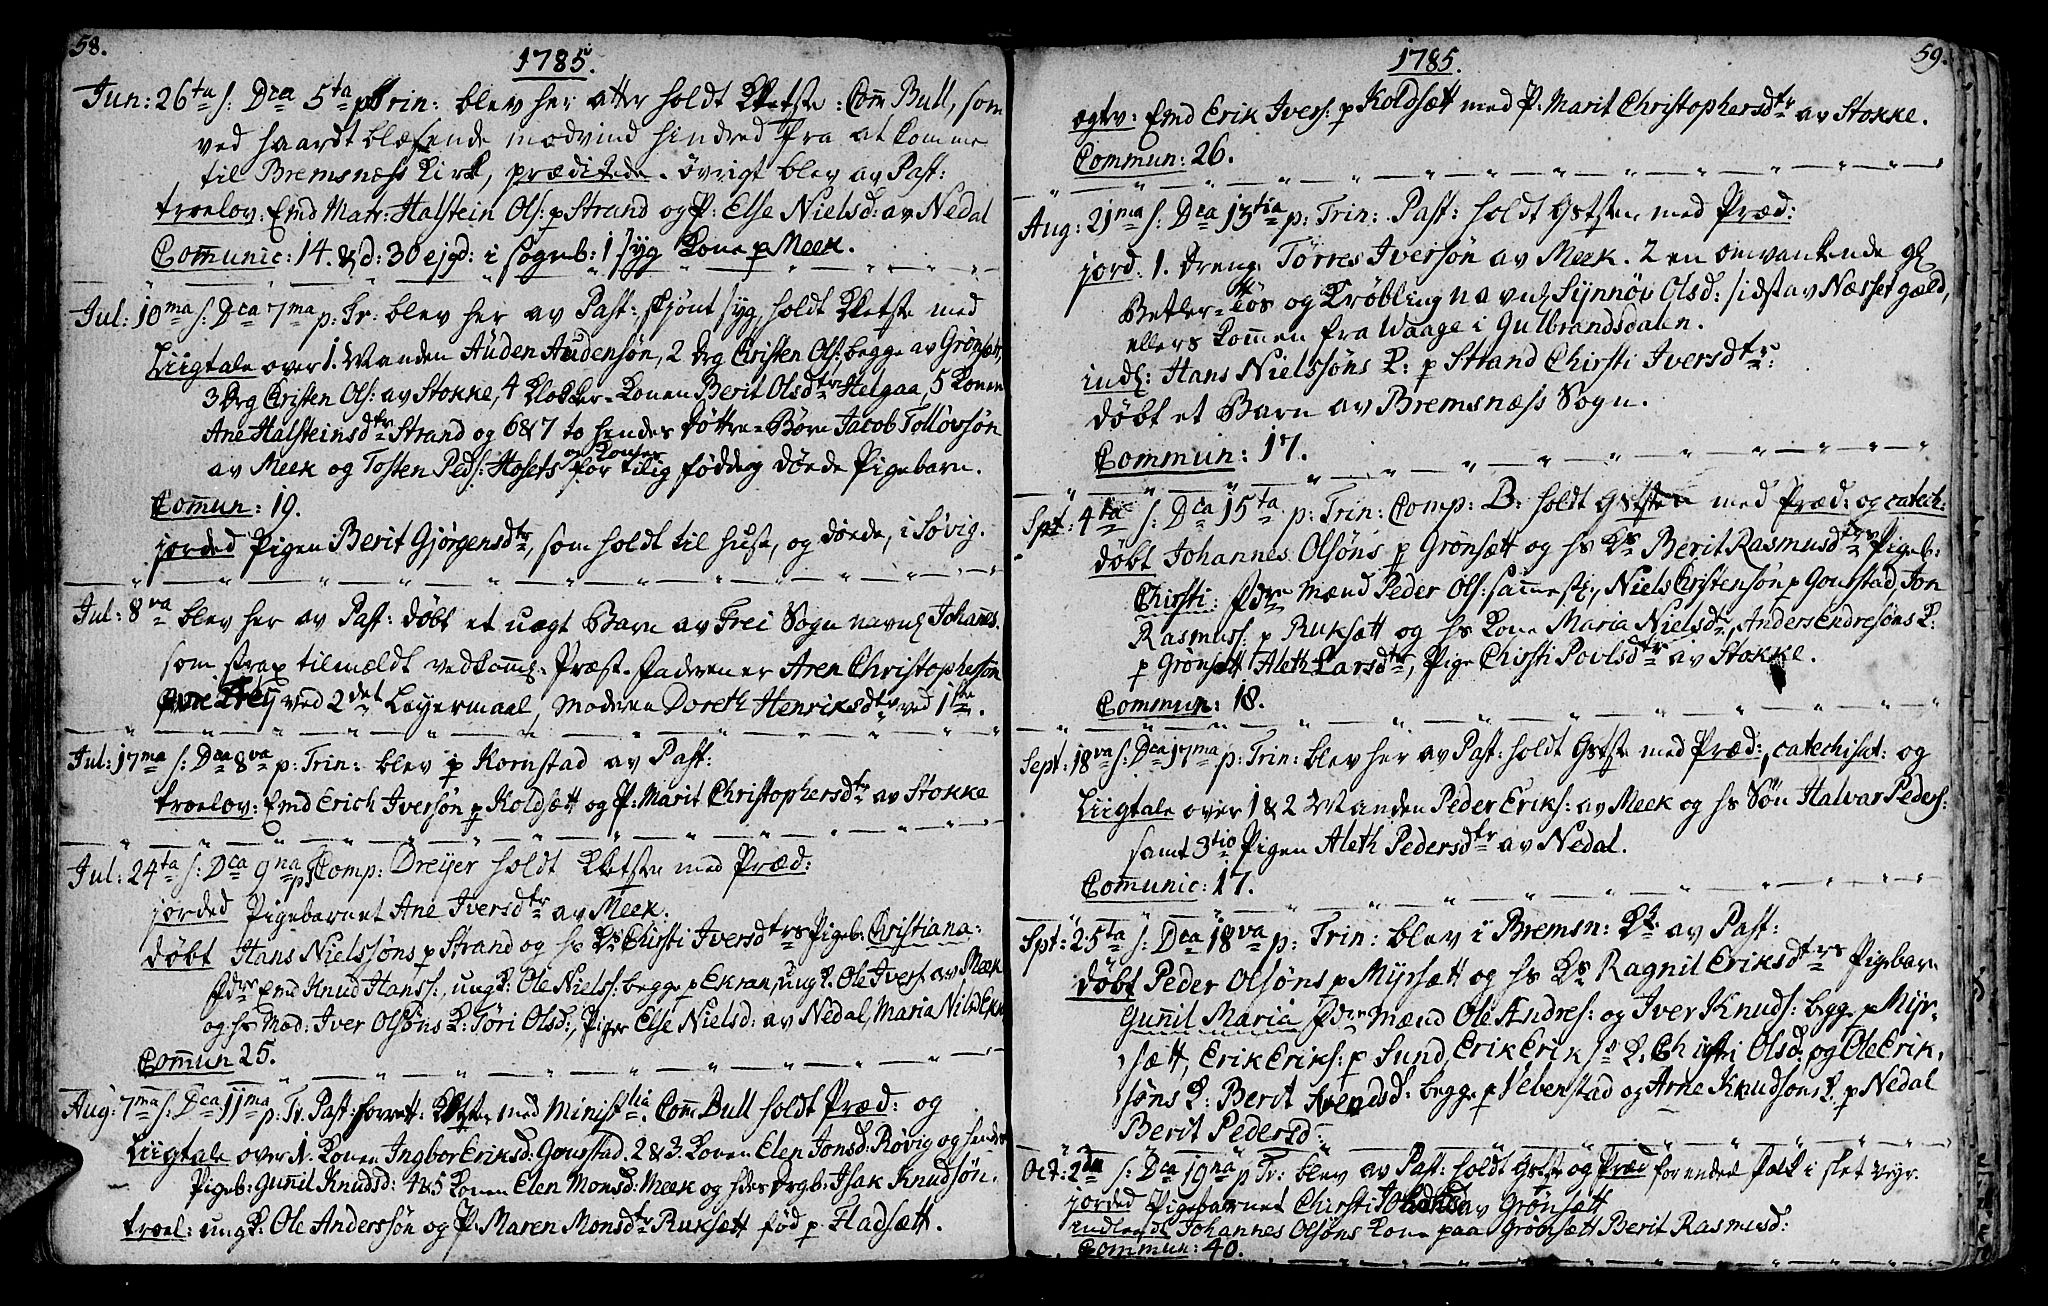 58.
1785.
Jun: 26ta s: Dca 5ta p Trin: blev her atter holdt Kketste: Com Bull, som
ved haardt blæsende modvind hindred fra at komme
til Bremsnæss Kirk, præditede. övrigt blev av Past:
troelov: Emd Matr: Halstein Ols: p Strand og P: Else Nielsd: av Nedal
Communic: 14. &d: 30 ejpd: i sogneb: 1 syg Kone p Meek.
Jul: 10ma s: Dca 7ma p: Tr: blev her av Past: skjönt syg, holdt Kketste med
Liigtale over 1. Manden Auden Audensön, 2 drg Cristen Ols: begge av Grönset,
3 drg Cristen Ols: av Stokke, 4 Klokker-Konen Berit Olsdtr Helgaa, 5 Konen
Ane Halsteinsdtr Strand og 6&7 to hendes Döttre-Börn Jacob Tollövsön
av Meek og Tosten Peds: Hosets og Kones for tilig födde og döede Pigebarn.
Commun: 19.
jorded Pigen Berit Gjörgensdtr, som holdt til huse, og döede, i Sövig.
Jul: 8va blev her av Past: döbt et uægt Barn av Frei Sogn navnl Johannes.
som strax tilmældt vedkomms: Præst. Faderen er Aren Christophersön
Frey ved 2det Leyermaal, Moderen Doreth Henriksdtr ved 1ste.
Jul: 17ma s: Dca 8va p: Trin: blev p Kornstad av Past:
troelov: Emd Erich Iversön p Koldsætt og P: Marit Christophersdtr av Stokke
Jul: 24ta s: Dca 9na p: Comp: Dreyer holdt Kketste med Præd:
jorded Pigebarnet Ane Iversdtr av Meek.
döbt Hans Nielssöns p Strand og hs Ks Chirsti Iversdtrs Pigeb: Christiana:
Fdre Emd Knud Hanss:, ungK: Ole Nielss: begge p Ekran, ungK. Ole Ivers: av Meek
og hs Mod: Iver Olsöns K: Söri Olsd:, Piger Else Nielsd: av Nedal, Maria Nilsd Ekr
Commun 25.
Aug: 7ma s: Dca 11ma p: Tr. Past: forrett: Kketste med Ministlia: Com Bull holdt Præd: og
Liigtale over 1. Konen Ingbor Eriksd: Gourstad. 2 & 3. Konen Elen Jonsd: Rövig og hendes
Pigeb: Gunnil Knudsd: 4&5 Konen Elen Monsd: Meek og hdes drgb: Isak Knudsön.
troel: ungK: Ole Anderssön og P Maren Monsdtr Ruksætt föd p Fladsætt.
1785.
59.
ægtv: Emd Erik Ivers: p Koldsætt med P: Marit Christophersdtr av Stokke.
Commun: 26.
Aug: 21ma s: Dca 13tia p: Trin: Past: holdt Gstste med Præd:
jord: 1. Dreng Törres Iversön av Meek. 2 en omvankende gl
Betler-Tös og Kröbling navnl Synnöv Olsd: sidst av Næsset gæld,
ellers kommen fra Waage i Gulbrandsdalen.
indl: Hans Nielssöns K: p Strand Chirsti Iversdtr:
döbt et Barn av Bremsnæss Sogn.
Commun: 17.
Spt: 4ta s: Dca 15ta p: Trin: Comp: B: holdt Gstste med Præd: og catech:
döbt Johannes Olsöns p Grönsætt og hs Ks Berit Rasmusdtrs Pigeb:
Chirsti: Fdre Mænd Peder Ols: sammest:, Niels Cristensön p Gourstad, Jon
Rasmuss: p Ruksætt og hs Kone Maria Nielsdtr, Anders Endresöns K:
p Grönsætt Aleth Larsdtr, Pige Chirsti Povlsdtr av Stokke.
Commun: 18.
Sept: 18va s: Dca 17ma p: Trin: blev her av Past: holdt Gstste med Præd:, catechisat: og
Liigtale over 1 & 2 Manden Peder Eriks: av Meek og hs Sön Halvar Peders:
samt 3tio Pigen Aleth Pedersdtr av Nedal.
Communic: 17.
Spt: 25ta s: Dca 18va p: Trin: blev i Bremsn: Kk av Past:
döbt Peder Olsöns p Myrsætt og hs Ks Ragnil Eriksdtrs Pigebarn
Gunnil Maria Fdre Mænd Ole Andres: og Iver Knuds: begge p Myr-
sætt, Erik Eriks: p Sund, Erik Eriks: K: Chirsti Olsd: og Ole Erik-
söns K: Berit Svendsd: begge p Vebenstad og Arne Knudsöns K p Nedal
Berit Pedersd:
Oct: 2da s: Dca 19na p Tr: blev av Past: holdt Gstste og Præd for endel Folk i slet veyr.
jorded Pigebarnet Chirsti av Grönsætt
indledt Johannes Olsöns Kone paa Grönsætt Berit Rasmusd:
Commun: 40.